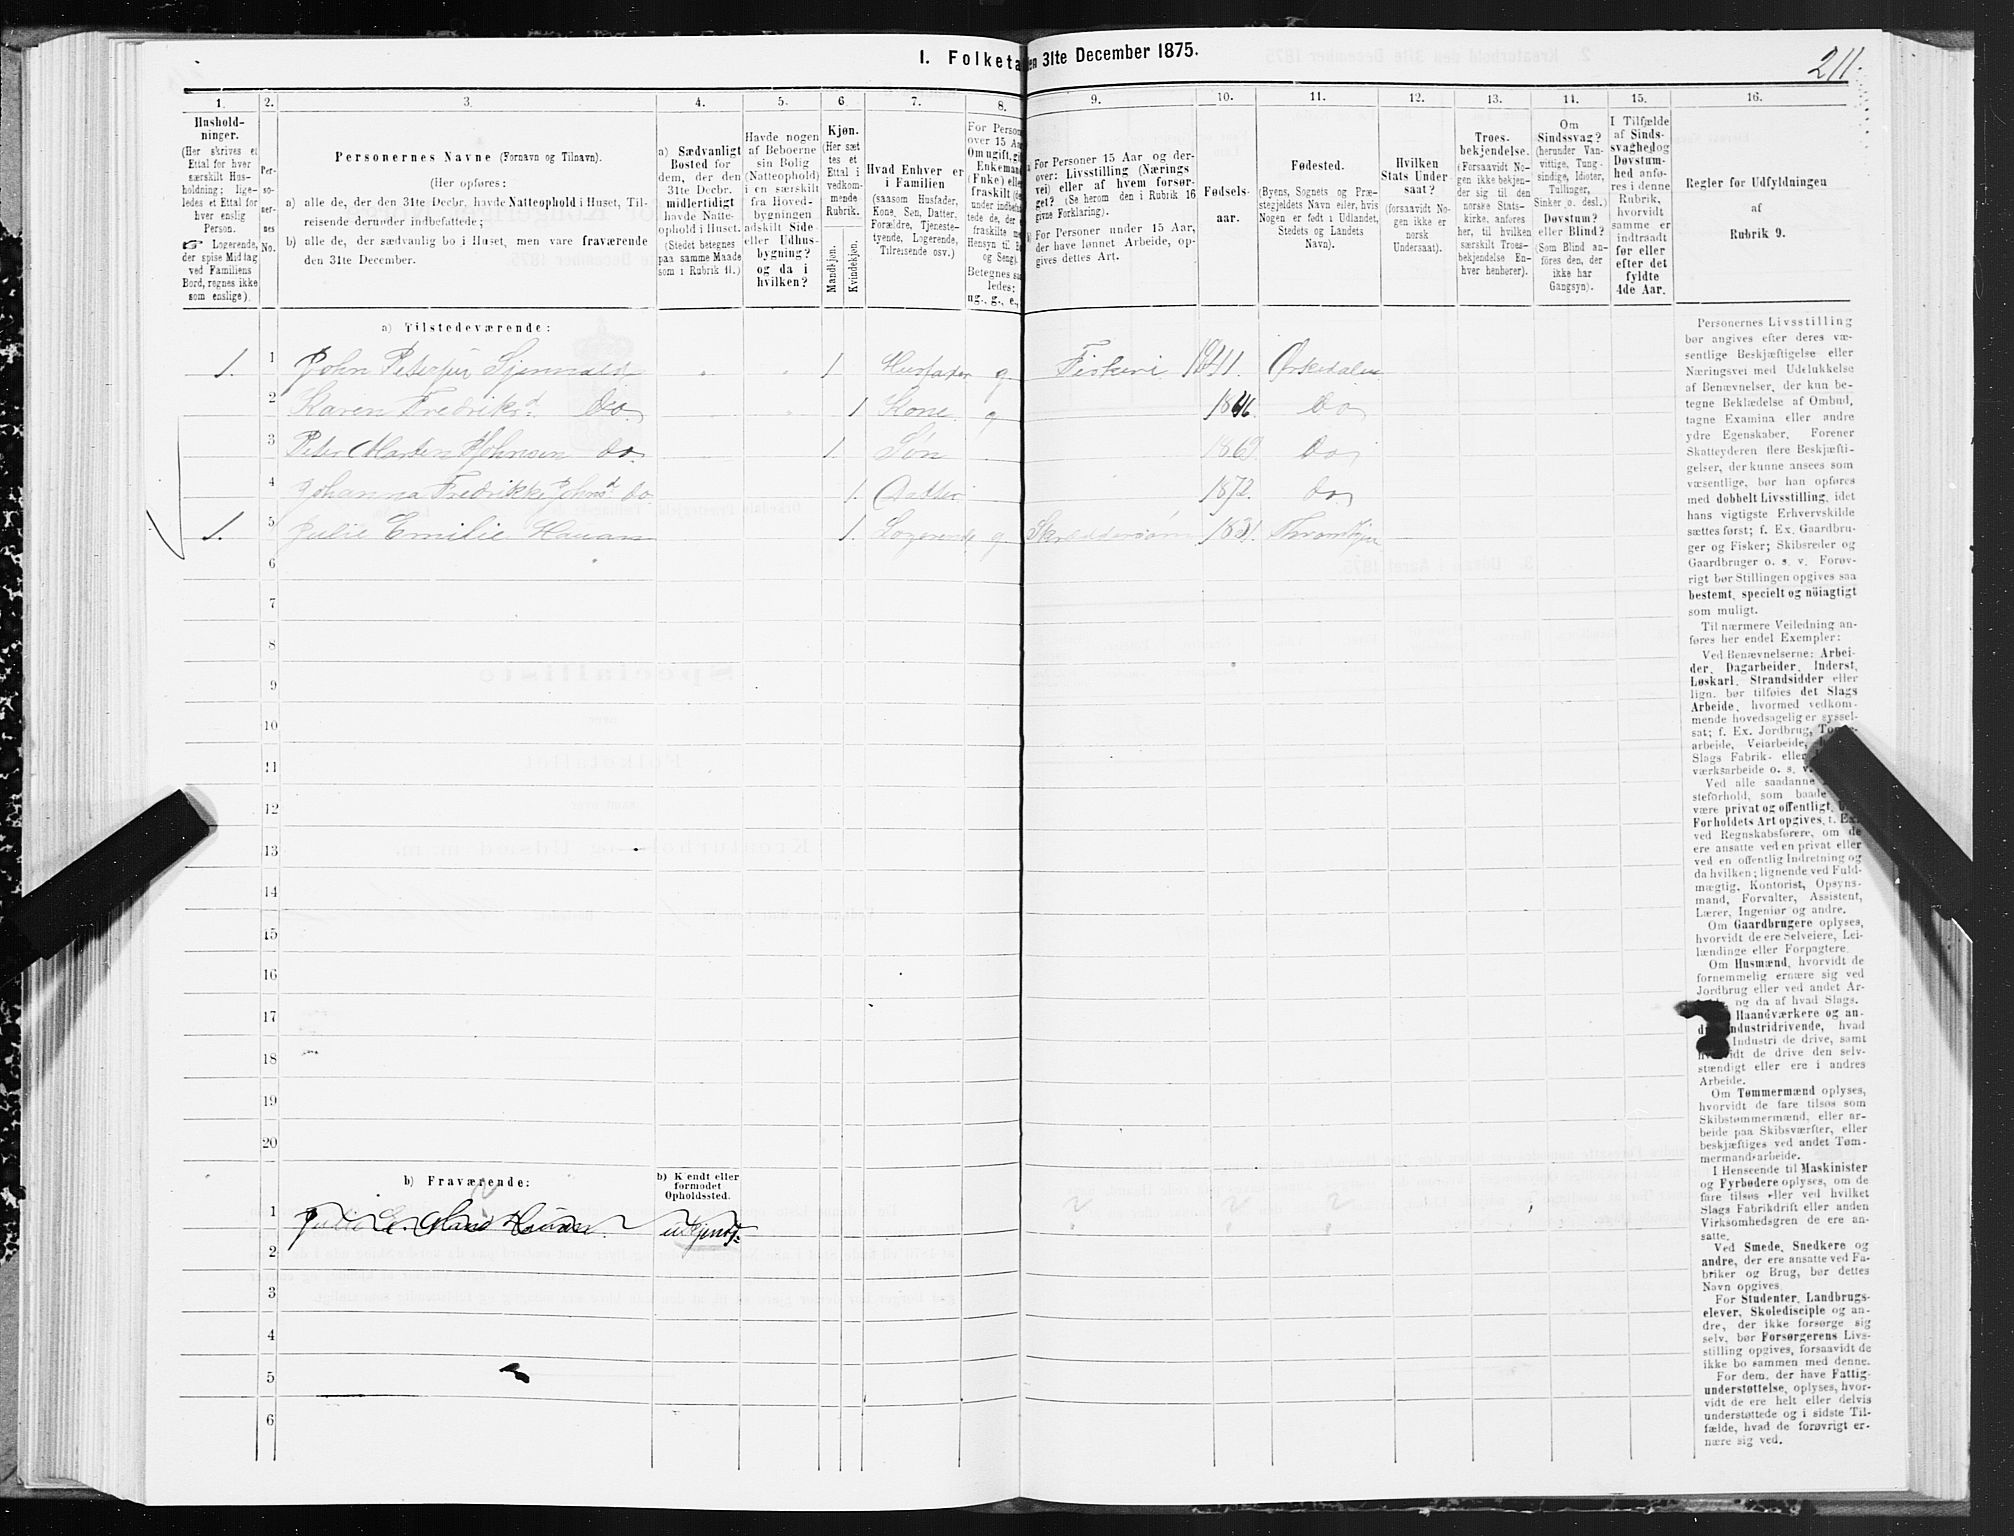 I. Folketa en 31te December 1875.
211.
1. 2. 3. 4. 5. 6. 7. 8. 9. 10. 11. 12. 13. 14. 15. 16.
Hushold-
ninger.
(Her skrives et
Ettal for hver
særskilt Hus-
holdning; lige-
ledes et Ettal for
hver enslig
Person.
☞ Logerende,
der spise Middag
ved Familiens
Bord, regnes ikke
som enslige).
Per-
so-
ner-
nes
No.
Personernes Navne (Fornavn og Tilnavn).
(Her opføres:
a) alle de, der den 31te Decbr. havde Natteophold i Huset, Til-
reisende derunder indbefattede;
b) alle de, der sædvanlig bo i Huset, men vare fraværende
den 31te December.
a) Sædvanligt
Bosted for
dem, der den
31te Decbr.
midlertidigt
havde Natte-
ophold i Huset.
(Stedet betegnes
paa samme Maade
som i Rubrik 11.)
Havde nogen
af Beboerne
sin Bolig
(Natteophold)
i en særskilt
fra Hoved-
bygningen
adskilt Side-
eller Udhus-
bygning?
og da i
hvilken?
Kjøn.
(Her sæt
tes et
Ettal i
vedkom-
mende
Rubrik.
Mandkjøn.
Kvindekjøn.
Hvad Enhver er
i Familien
(saasom Husfader,
Kone, Søn, Datter,
Forældre, Tjeneste-
tyende, Logerende,
Tilreisende osv.)
For Person
over 15 Aa
Om ugift, gi
Enkeman
(Enke) elle
fraskilt (de
under indbefat
tede de, der
fraskilte m
Hensyn til
og Seng).
Betegnes sa
ledes:
ug., g., e.,
For Personer 15 Aar og der-
over: Livsstilling (Nærings
vei) eller af hvem forsør-
get? (Se herom den i Rubrik 16
givne Forklaring).
For Personer under 15 Aar,
der have lønnet Arbeide, op-
gives dettes Art.
Fødsels-
aar.
Fødested.
(Byens, Sognets og Præ-
stegjeldets Navn eller, hvis
Nogen er født i Udlandet,
Stedets og Landets
Navn).
Hvilken
Stats Under-
saat?
(forsaavidt No-
gen ikke er
norsk
Undersaat).
Troes-
bekjendelse.
(Forsaavidt No-
gen ikke bekjen-
der sig til den
norske Stats-
kirke, anføres
her, til hvilken
særskilt Troes-
bekjendelse En-
hver henhører).
Om
Sindssvag?
(herunder Van-
vittige, Tung-
sindige, Idioter,
Tullinger,
Sinker o. desl.)
Døvstum?
eller Blind?
(Som Blind an-
føres den, der
ikke har
Gangsyn).
I Tilfælde
af Sinds-
svaghed og
Døvstum-
hed anfø-
res i denne
Rubrik,
hvorvidt
samme er
indtraadt
før eller
efter det
fyldte
4de Aar.
Regler for Udfyldningen
af
Rubrik 9.
a) Tilstedeværende:
1. 1 John Petersen 1 Husfader g Fiskeri 1841. Orkedalen
2 Karen Fredriksd. Do 1 Kone g 1846. Do
3 Peter Marten Johnsen Do 1 Søn Do
4 Johanna Fredrikke Johnsd. Do 1. Datter 1872. Do
1. 5 Julie Emilie 1. Logerende g 1831. Thromhjem
6
7
8
9
10
11
12
13
14
15
16
17
18
19
20
b) Fraværende:
b) Kjendt eller
formodet
Opholdssted.
1
2
3
4
5
6
Personernes Livsstilling
bør angives efter deres væ-
sentlige Beskjæftigelse eller
Næringsvei med Udelukkelse
af Benævnelser, der kun be-
tegne Beklædelse af Ombud,
tagne Examina eller andre
ydre Egenskaber. Forener
Skatteyderen flere Beskjæfti-
gelser, der kunne ansees som
væsentlige, bør han opføres
med dobbelt Livsstilling, idet
hans vigtigste Erhvervskilde
sættes først; f. Ex. Gaardbru-
ger og Fisker; Skibsreder og
Gaardbruger o. s. v. Forøv-
rigt bør Stillingen opgives saa
bestemt, specielt og nöiagtigt
som muligt.
Til nærmere Veiledning an-
føres her endel Exempler:
Ved Benævnelserne: Arbei-
der, Dagarbeider, Inderst,
Løskarl, Strandsidder eller
lign. bør tilføies det Slags
Arbeide, hvormed vedkom-
mende hovedsagelig er syssel-
sat; f. Ex. Jordbrug,
arbeide, Veiarbeide,
Slags Fabrik- eller
værksarbeide o. s. v.
Ved alle saadanne
steforhold, som baade
være privat og offentligt,
Forholdets Art opgives, f. Ex.
ved Regnskabsførere, om de
ere ansatte ved en privat eller
ved en offentlig Indretning og
da hvilken; lignende ved Fuld-
mægtig, Kontorist, Opsyns-
mand, Forvalter, Assistent,
Lærer, Ingeniør og andre.
Om Gaardbrugere oplyses,
hvorvidt de ere Selveiere, Lei-
lændinge eller Forpagtere.
Om Husmænd, hvorvidt de
fornemmelig ernære sig ved
Jordbrug eller ved andet Ar-
og da af hvad Slags.
Haandværkere og an-
Industridrivende, hvad
Industri de drive, samt
hvorvidt de drive den selv-
stændigt eller ere i andres
Arbeide.
Om Tømmermænd oplyses,
hvorvidt de fare tilsøs som
Skibstømmermænd, eller ar-
beide paa Skibsværfter, eller
beskjæftiges ved andet Tøm-
mermandsarbeide.
I Henseende til Maskinister
og Fyrbødere oplyses, om de
fare tilsøs eller ved hvilket
Slags Fabrikdrift eller anden
Virksomhedsgren de ere an-
satte.
Ved Smede, Snedkere og
andre, der ere ansatte ved Fa-
briker og Brug, bør dettes
Navn opgives.
For Studenter, Landbrugs-
elever, Skoledisciple og an-
dre, der ikke forsørge sig
selv, bør Forsørgerens Livs-
stilling opgives, forsaavidt de
ikke bo sammen med denne.
For dem, der have Fattig-
understøttelse, oplyses, hvor-
vidt de ere helt eller delvis
understøttede og i sidste Til-
fælde, hvad de forøvrigt er-
nære sig ved.